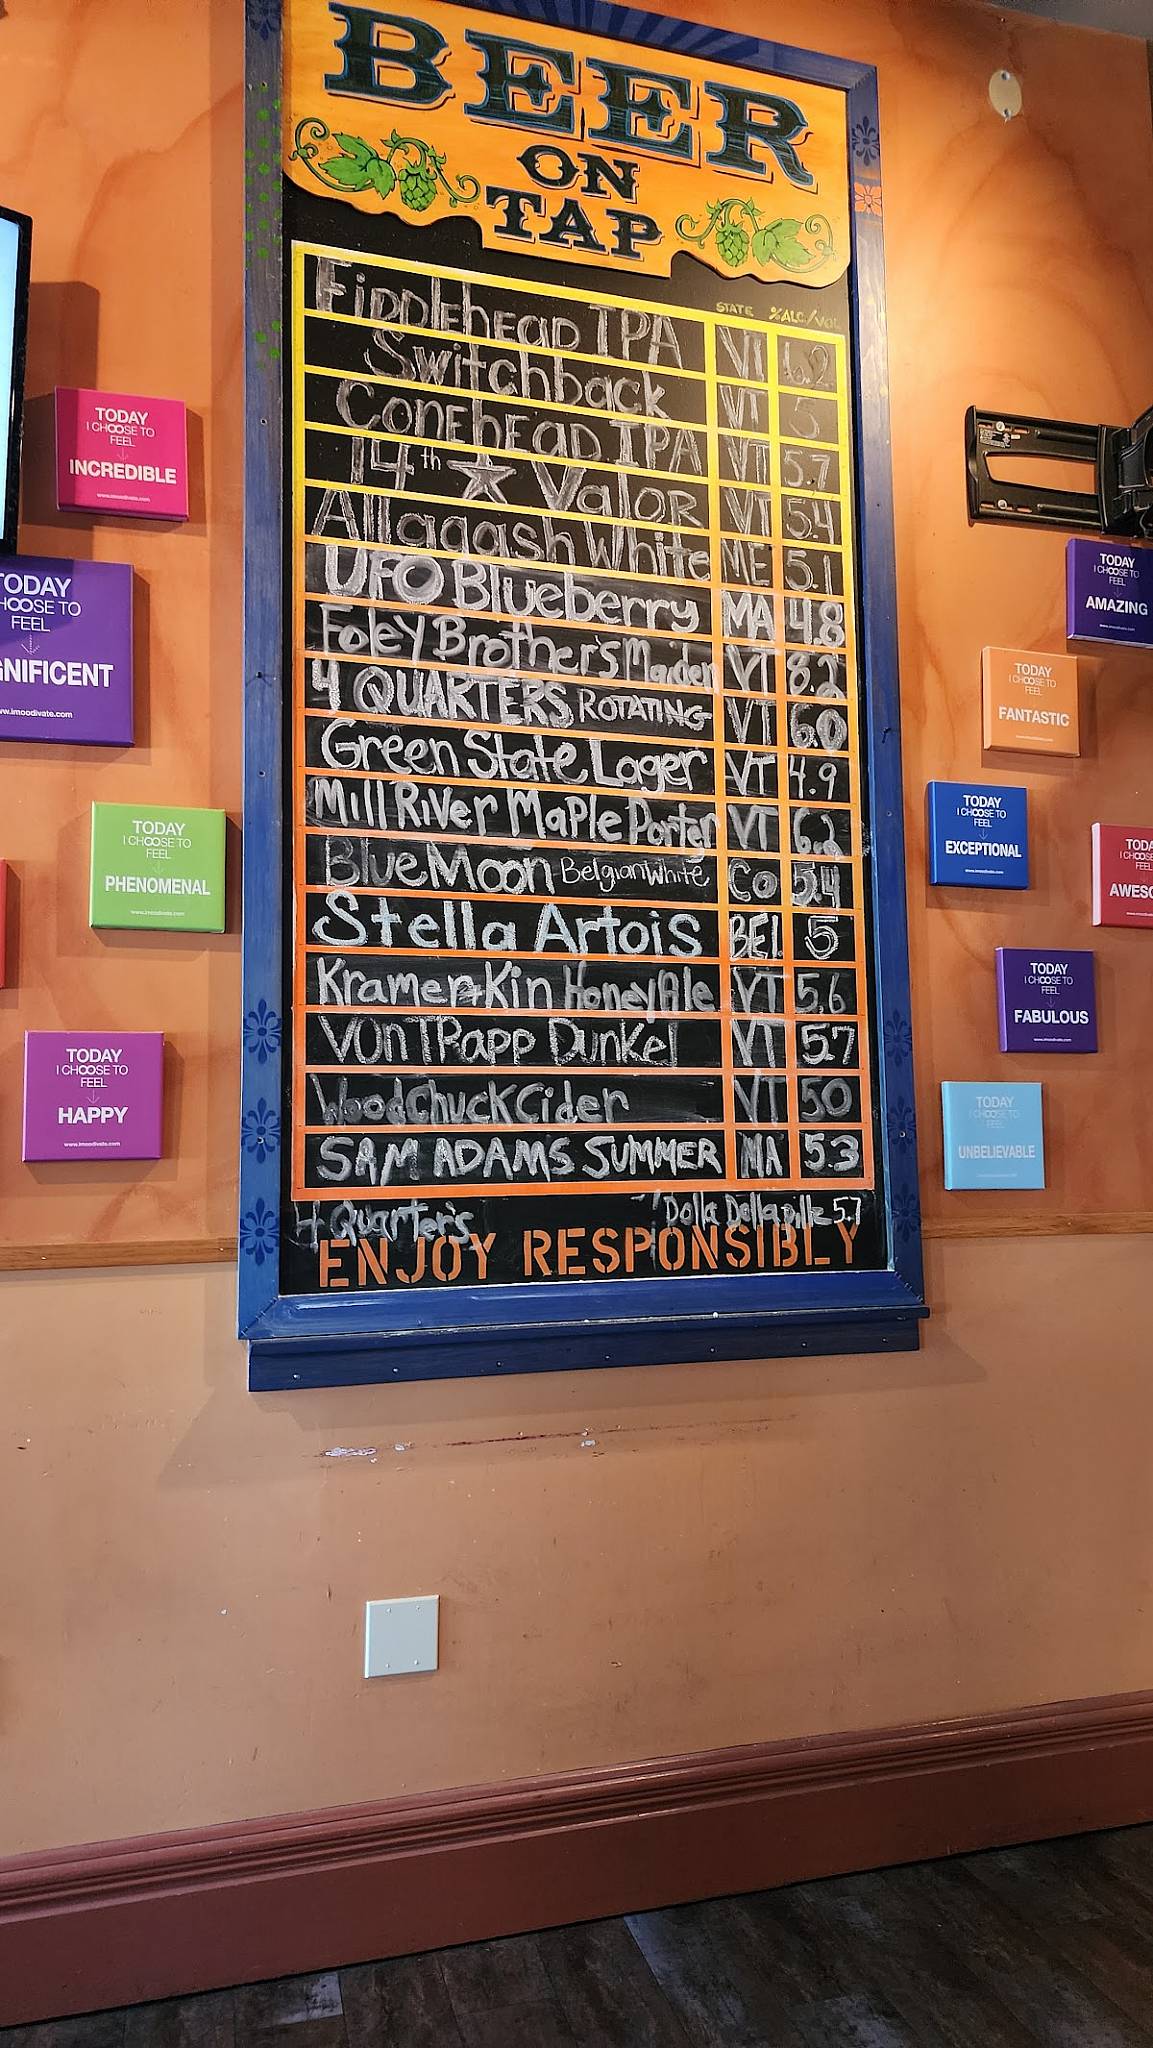 BEER
ON
TAP
STATE %ALC/VOL
Fiddlehead IPA VT 6.2
Switchback VT 5
Conehead IPA VT 5.7
14th ★ Valor VT 5.4
Allagash White ME 5.1
UFO Blueberry MA 4.8
Foley Brother's Maiden VT 8.2
4 QUARTERS ROTATING VT 6.0
Green State Lager VT 4.9
Mill River Maple Porter VT 6.2
Blue Moon Belgian White CO 5.4
Stella Artois BEL 5
Kramer + Kin Honey Ale VT 5.6
Von Trapp Dunkel VT 5.7
Woodchuck Cider VT 50
SAM ADAMS SUMMER MA 5.3
4 Quarter's "Dolla Dolla 5.7
ENJOY RESPONSIBLY
TODAY
I CHOOSE TO
FEEL
INCREDIBLE
www.imoodivate.com
TODAY
HOOSE TO
FEEL
GNIFICENT
ww.imoodivate.com
TODAY
I CHOOSE TO
FEEL
PHENOMENAL
www.imoodivate.com
TODAY
I CHOOSE TO
FEEL
HAPPY
www.imoodivate.com
TODAY
I CHOOSE TO
FEEL
AMAZING
TODAY
I CHOOSE TO
FEEL
FANTASTIC
TODAY
I CHOOSE TO
FEEL
EXCEPTIONAL
TODA
I CHOOSE
FEEL
AWESO
TODAY
I CHOOSE TO
FEEL
FABULOUS
TODAY
I CHOOSE TO
FEEL
UNBELIEVABLE